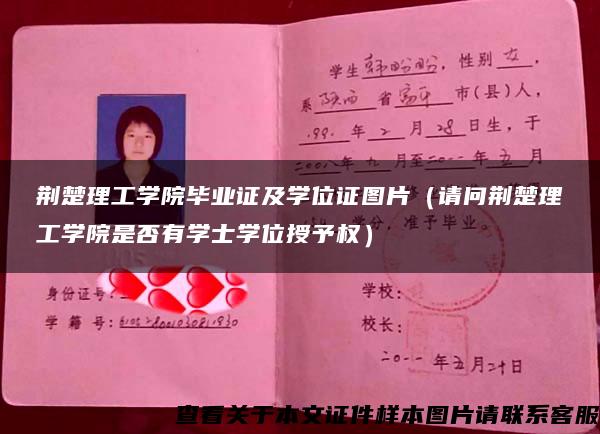 学生韩盼盼，性别女，
系陕西省富平市(县)人，
199 年2月28日生，于
二00八年九月至二0一一年五月
荆楚理工学院毕业证及学位证图片（请问荆楚理
工学院是否有学士学位授予权）
学分，准予毕业。
身份证号：
学籍号：
学校：
校长：
二0一一年五月二十日
查看关于本文证件样本图片请联系客服